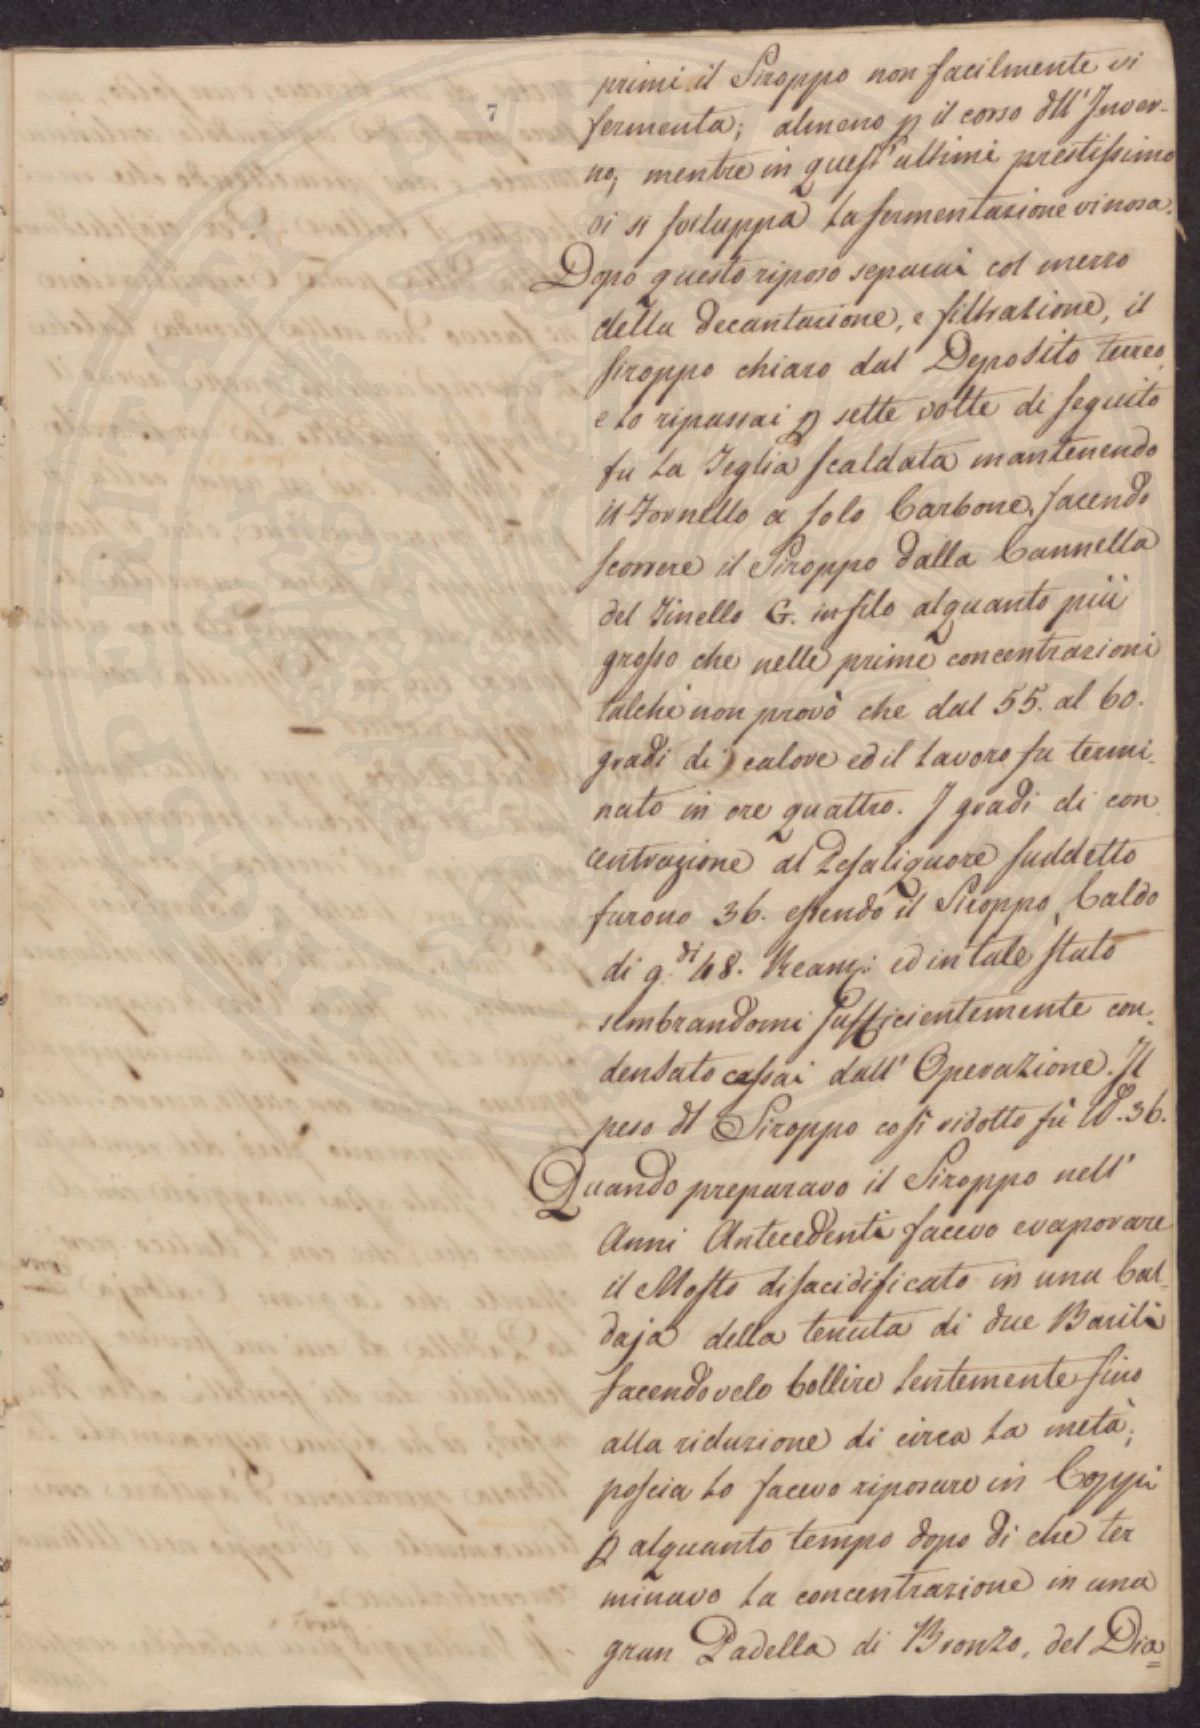 7
primi il Siroppo non facilmente vi
fermenta; almeno p il corso dll' Inver-
no; mentre in quest' ultimi prestissimo
vi si sviluppa la fermentazione vinosa.
Dopo questo riposo separai col mezzo
della decantazione, e filtrazione, il
siroppo chiaro dal Deposito terreo,
e lo ripassai p sette volte di seguito
su la Teglia scaldata mantenendo
il Fornello a solo Carbone, facendo
scorrere il Siroppo dalla Cannella
del Tinello G. in filo alquanto più
grosso che nelle prime concentrazioni
talchè non provò che dal 55. al 60.
gradi di calore ed il lavoro fu termi-
nato in ore quattro. I gradi di con
centrazione al Pesaliquore suddetto
furono 36. essendo il Siroppo Caldo
di g.di 48. Reaum: ed in tale stato
sembrandomi sufficientemente con-
densato cessai dall' Operazione. Il
peso dl Siroppo così ridotto fù lb. 36.
Quando preparavo il Siroppo nell'
Anni Antecedenti facevo evaporare
il Mosto disacidificato in una Cal-
daja della tenuta di due Barili
facendovelo bollire lentemente fino
alla riduzione di circa la metà;
poscia lo facevo riposare in Coppi
p alquanto tempo dopo di che ter
minavo la concentrazione in una
gran Padella di Bronzo, del Dia=